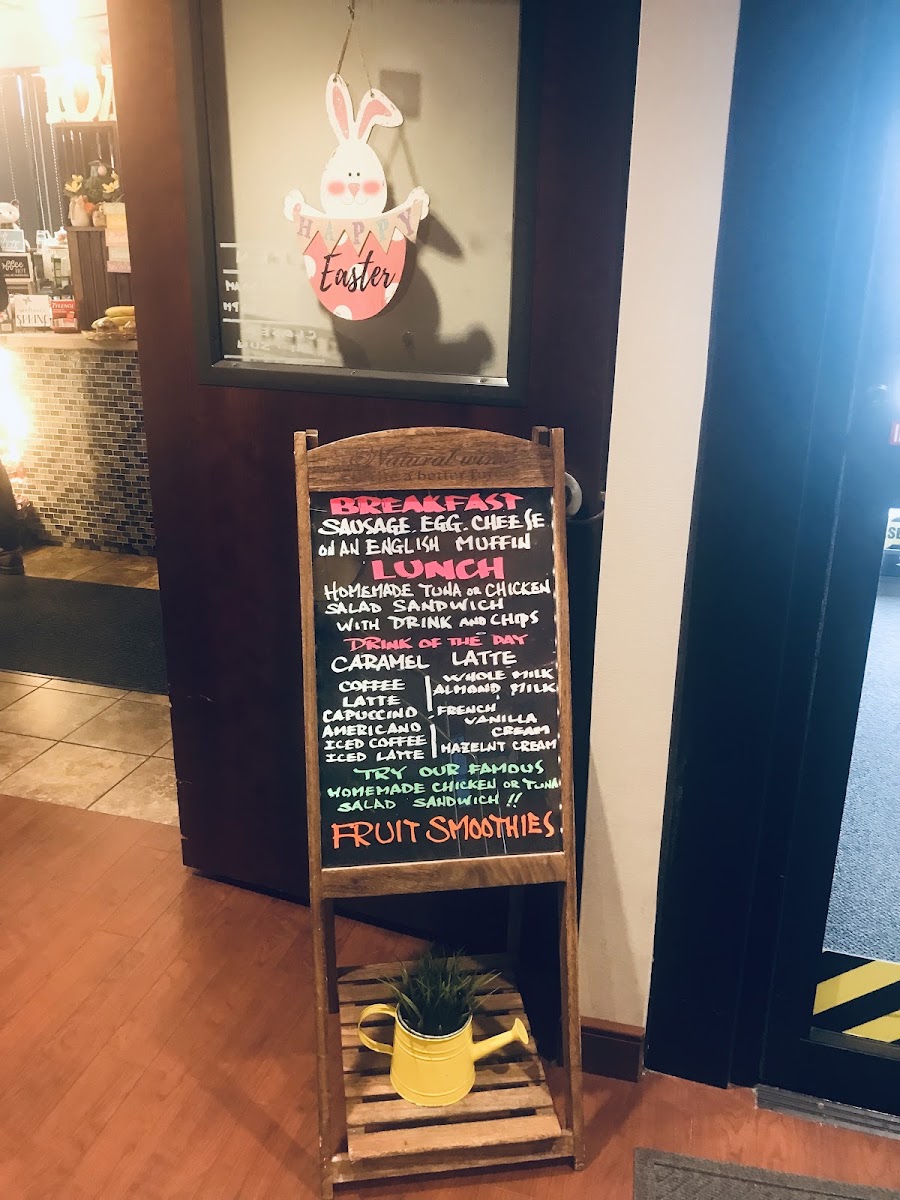 HAPPY
Easter
SPRING
Natural
a better
BREAKFAST
SAUSAGE. EGG. CHEESE
ON AN ENGLISH MUFFIN
LUNCH
HOMEMADE TUNA OR CHICKEN
SALAD SANDWICH
WITH DRINK AND CHIPS
DRINK OF THE DAY
CARAMEL LATTE
COFFEE
LATTE
CAPUCCINO
AMERICANO
ICED COFFEE
ICED LATTE
WHOLE MILK
ALMOND MILK
FRENCH
VANILLA
CREAM
HAZELNT CREAM
TRY OUR FAMOUS
HOMEMADE CHICKEN OR TUNA
SALAD SANDWICH !!
FRUIT SMOOTHIES